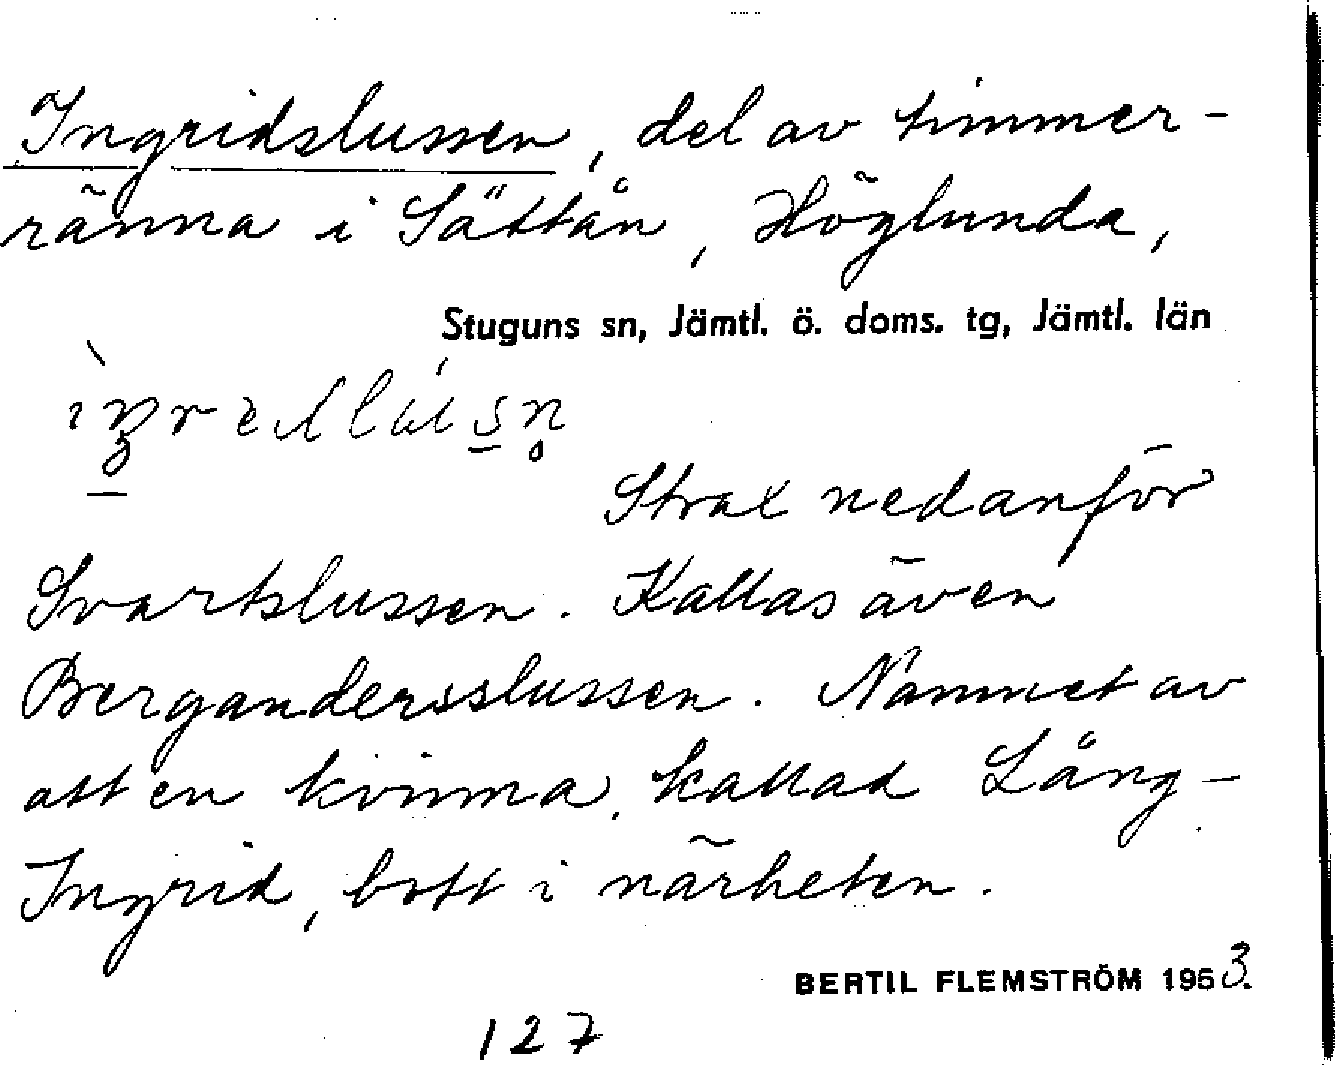 Ingridslussen, del av timmer-
ränna i Sättån, Höglunda,
Stuguns sn, Jämtl. ö. doms. tg, Jämtl. län
Strax nedanför
Svartslussen. Kallas även
Bergandersslussen. Namnet av
att en kvinna, kallad Lång-
Ingrid, bott i närheten.
BERTIL FLEMSTRÖM 1953.
127